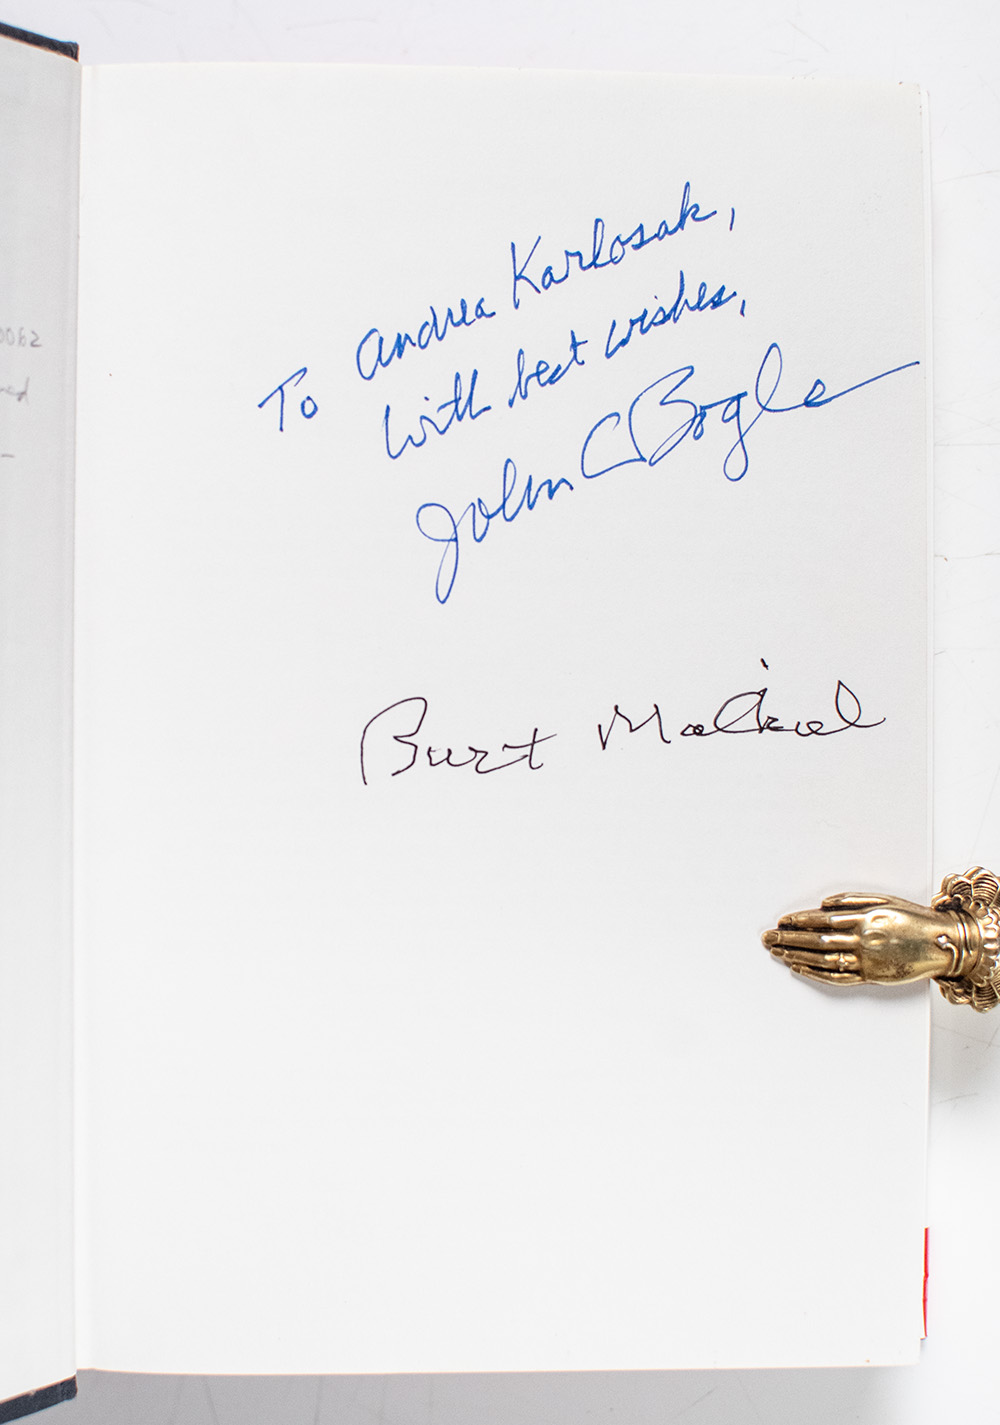 To Andrea Karlosak,
With best wishes,
John C Bogle
Burt Malkiel
0062